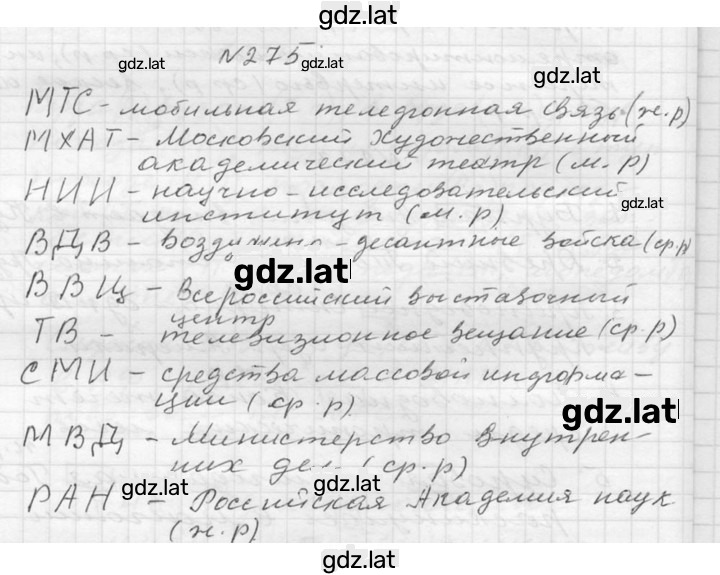 gdz.lat
N275
gdz.lat
gdz.lat
gdz.lat
МТС - мобильная телефонная связь (ж.р)
МХАТ - Московский Художественный
академический театр (м.р)
НИИ - научно-исследовательский
gdz.lat
институт (м.р)
ВДВ - воздушно-десантные войска (ср.р)
gdz.lat
ВВЦ - Всероссийский выставочный
центр
ТВ - телевизионное вещание (ср.р)
СМИ - средства массовой информа-
ции (ср.р)
gdz.lat
МВД - Министерство внутрен-
них дел (ср.р)
gdz.lat
gdz.lat
РАН - Российская Академия наук
(ж.р)
gdz.lat